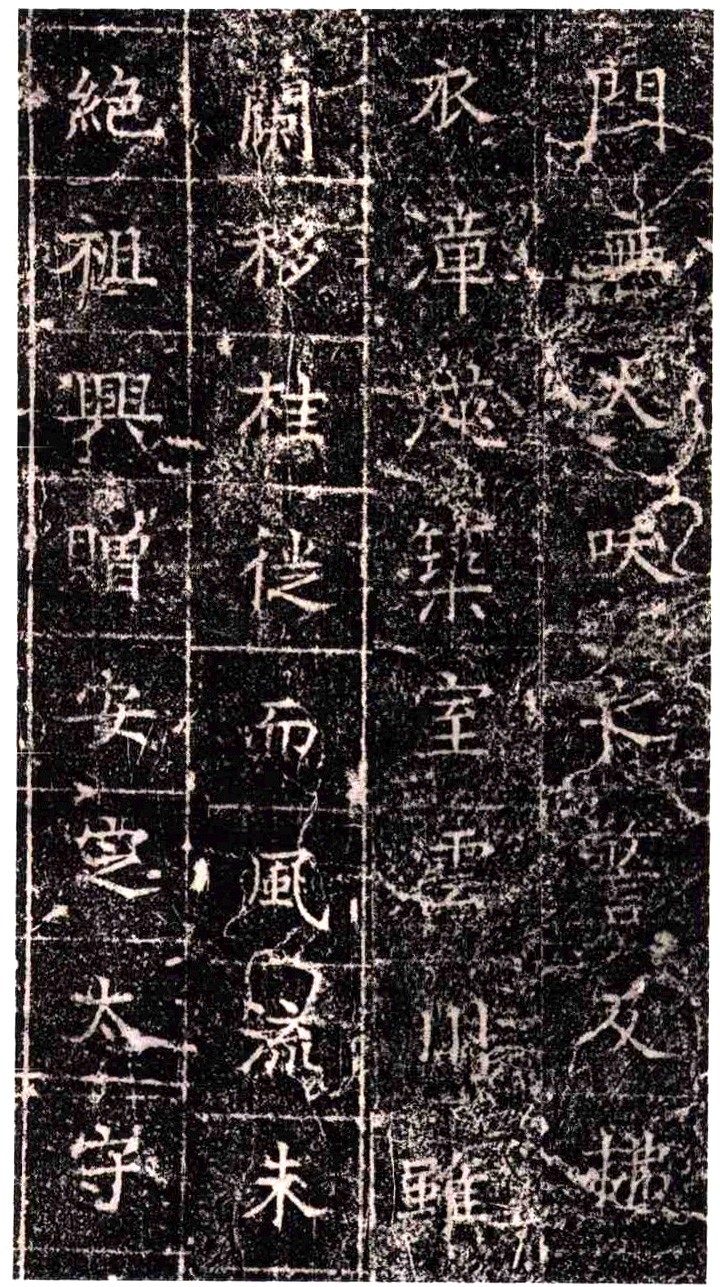 門無犬吠長及拂
衣漳滏築室雲川雖
蘭移桂徙而風流未
絕祖興贈安定太守